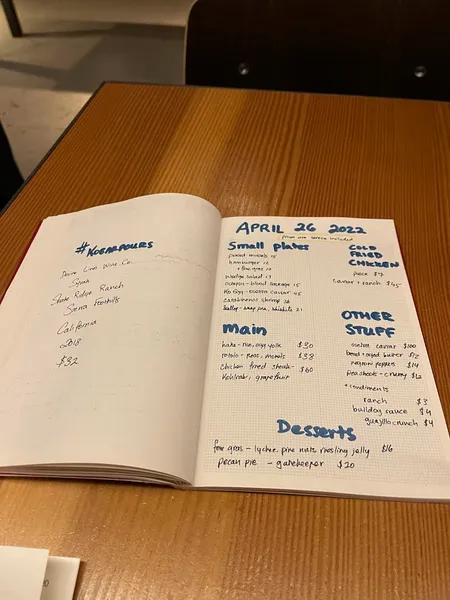 #KOBARPOURS
Dave Lino Wine Co.
Syrah
Shake Ridge Ranch
Sierra Foothills
California
2018
$32
APRIL 26 2022
prices are service included
Small plates
pickled mussels 15
hamburger 12
+ foie gras 12
wedge salad 17
octopus - blood sausage 25
Ko egg - osetra caviar 45
carabineros shrimp 26
scallop - snap pea, shishito 21
COLD
FRIED
CHICKEN
piece $7
caviar + ranch $45
Main
hake - nori, egg yolk $30
potato - peas, morels $38
chicken fried steak - $60
Kohlrabi, grapefruit
OTHER
STUFF
osetra caviar $100
bread + aged butter $12
nardini peppers $14
pea shoots - crunchy $12
*condiments
ranch $3
bulldog sauce $4
guajillo crunch $4
Desserts
foie gras - lychee, pine nuts, riesling jelly $16
pecan pie - gatekeeper $20